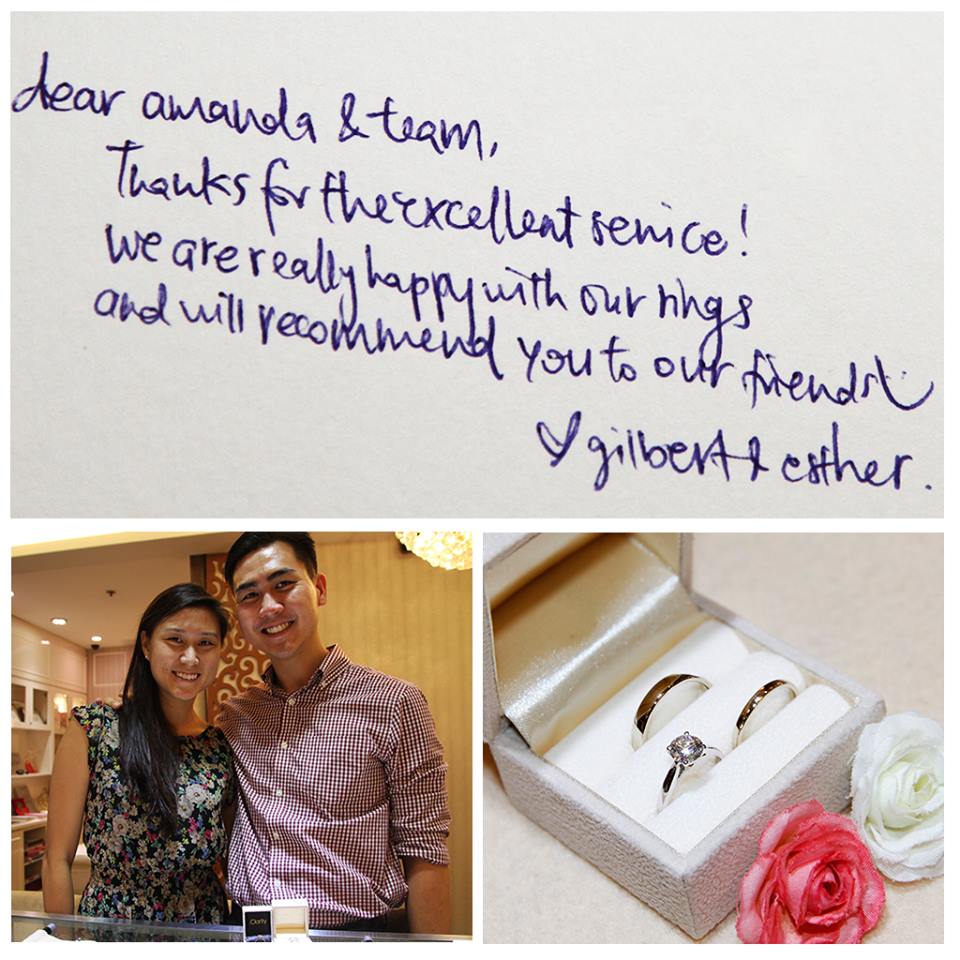 dear amanda & team,
Thanks for the excellent service!
we are really happy with our rings
and will recommend you to our friends!
♡ gilbert & esther.
Clarity